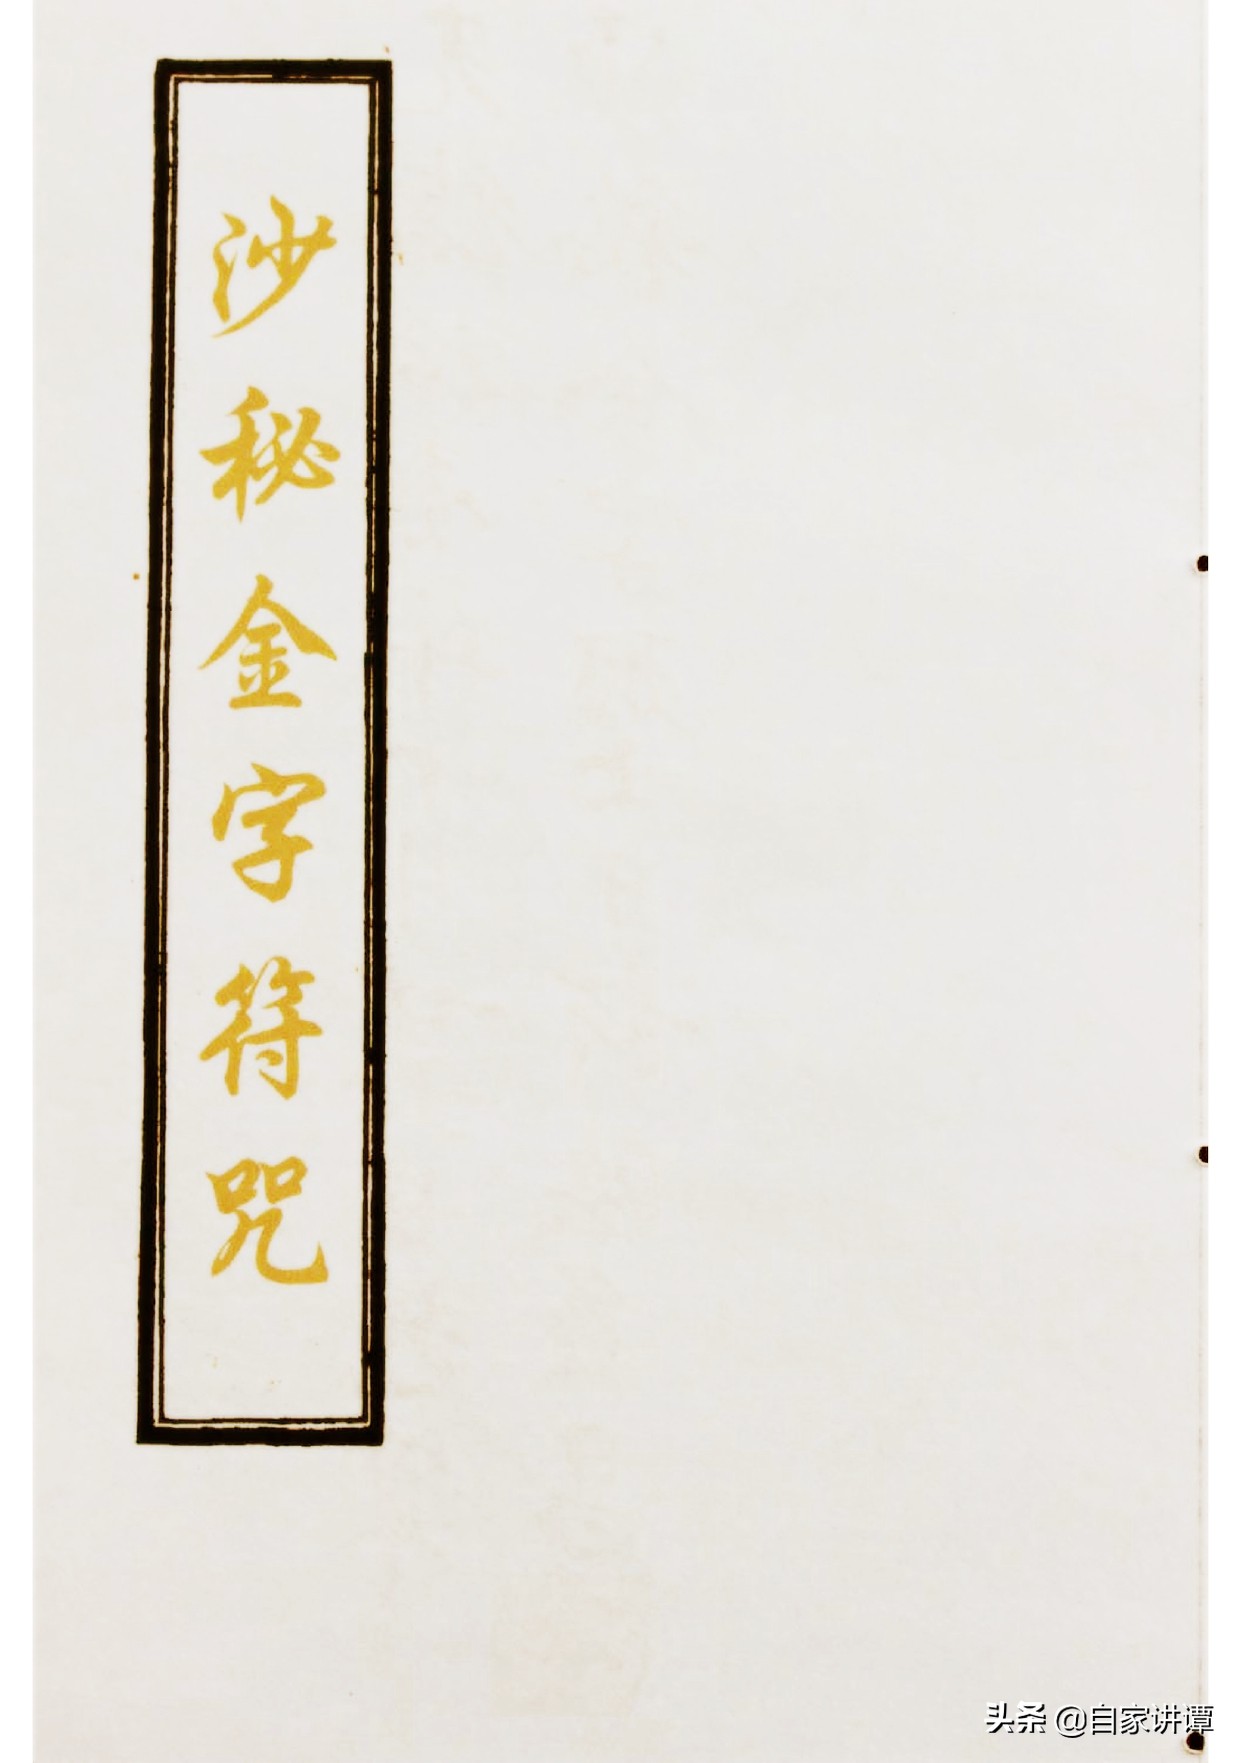 沙秘金字符咒
头条 @自家讲谭